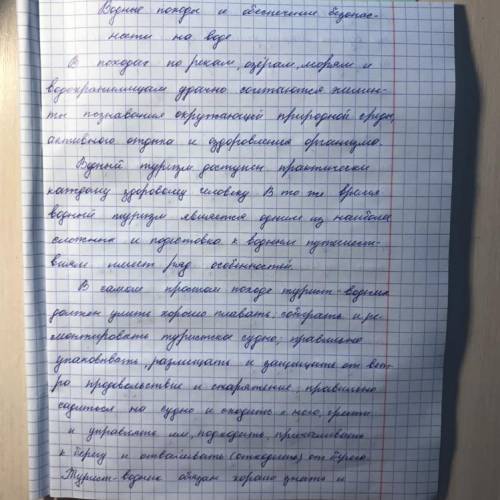 Водные походы и обеспечение безопас-
ности на воде
В походах по рекам, озёрам, морям и
водохранилищам удачно сочитаются элемен-
ты познавания окружающей природной среды,
активного отдыха и оздоровления организма.
Водный туризм доступен практически
каждому здоровому человеку. В то же время
водный туризм является одним из наиболее
сложных и подготовка к водным путешест-
виям имеет ряд особенностей.
В самом простом походе турист-водник
должен уметь хорошо плавать; собирать и ре-
монтировать туристское судно; правильно
упаковывать, размещать и защищать от вет-
ра продовольствие и снаряжение; правильно
садиться на судно и сходить с него, грести
и управлять им, подходить, причаливать
к берегу и отваливать (отходить) от берега.
Турист-водник обязан хорошо знать и